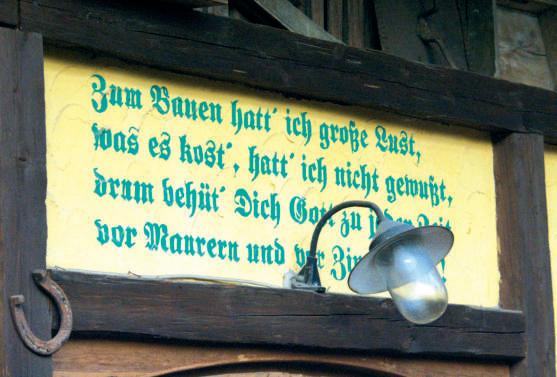 Zum Bauen hatt' ich große Lust,
was es kost', hatt' ich nicht gewußt,
drum behüt' Dich Gott zu jeder Zeit
vor Maurern und vor